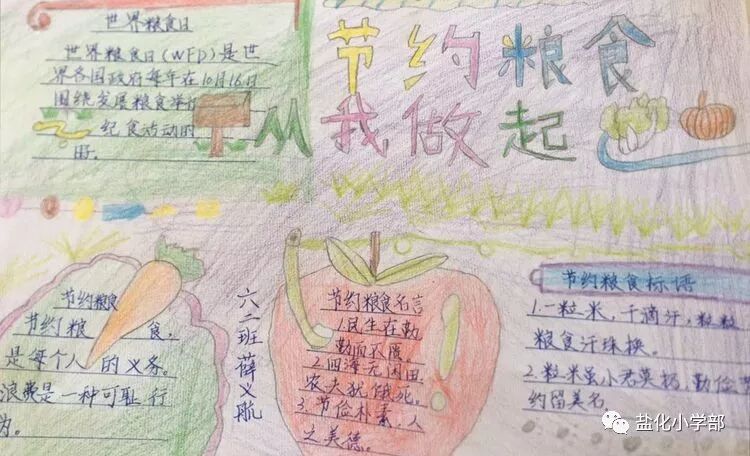 世界粮食日
世界粮食日(WFD)是世
界各国政府每年在10月16日
围绕发展粮食举行
纪食活动的
日。
节约粮食
从我做起
节约粮食
节约粮 食,
是每个人 的义务。
浪费是一种可耻 行
为。
六二班薛义航
节约粮食名言
1.民生在勤,
勤而不匮。
2.四海无闲田
农夫犹饿死。
3.节俭朴素,人
之美德。
节约粮食标语
1.一粒米,千滴汗,粒粒
粮食汗珠换。
2.粒米虽小君莫扔,勤俭节
约留美名
盐化小学部